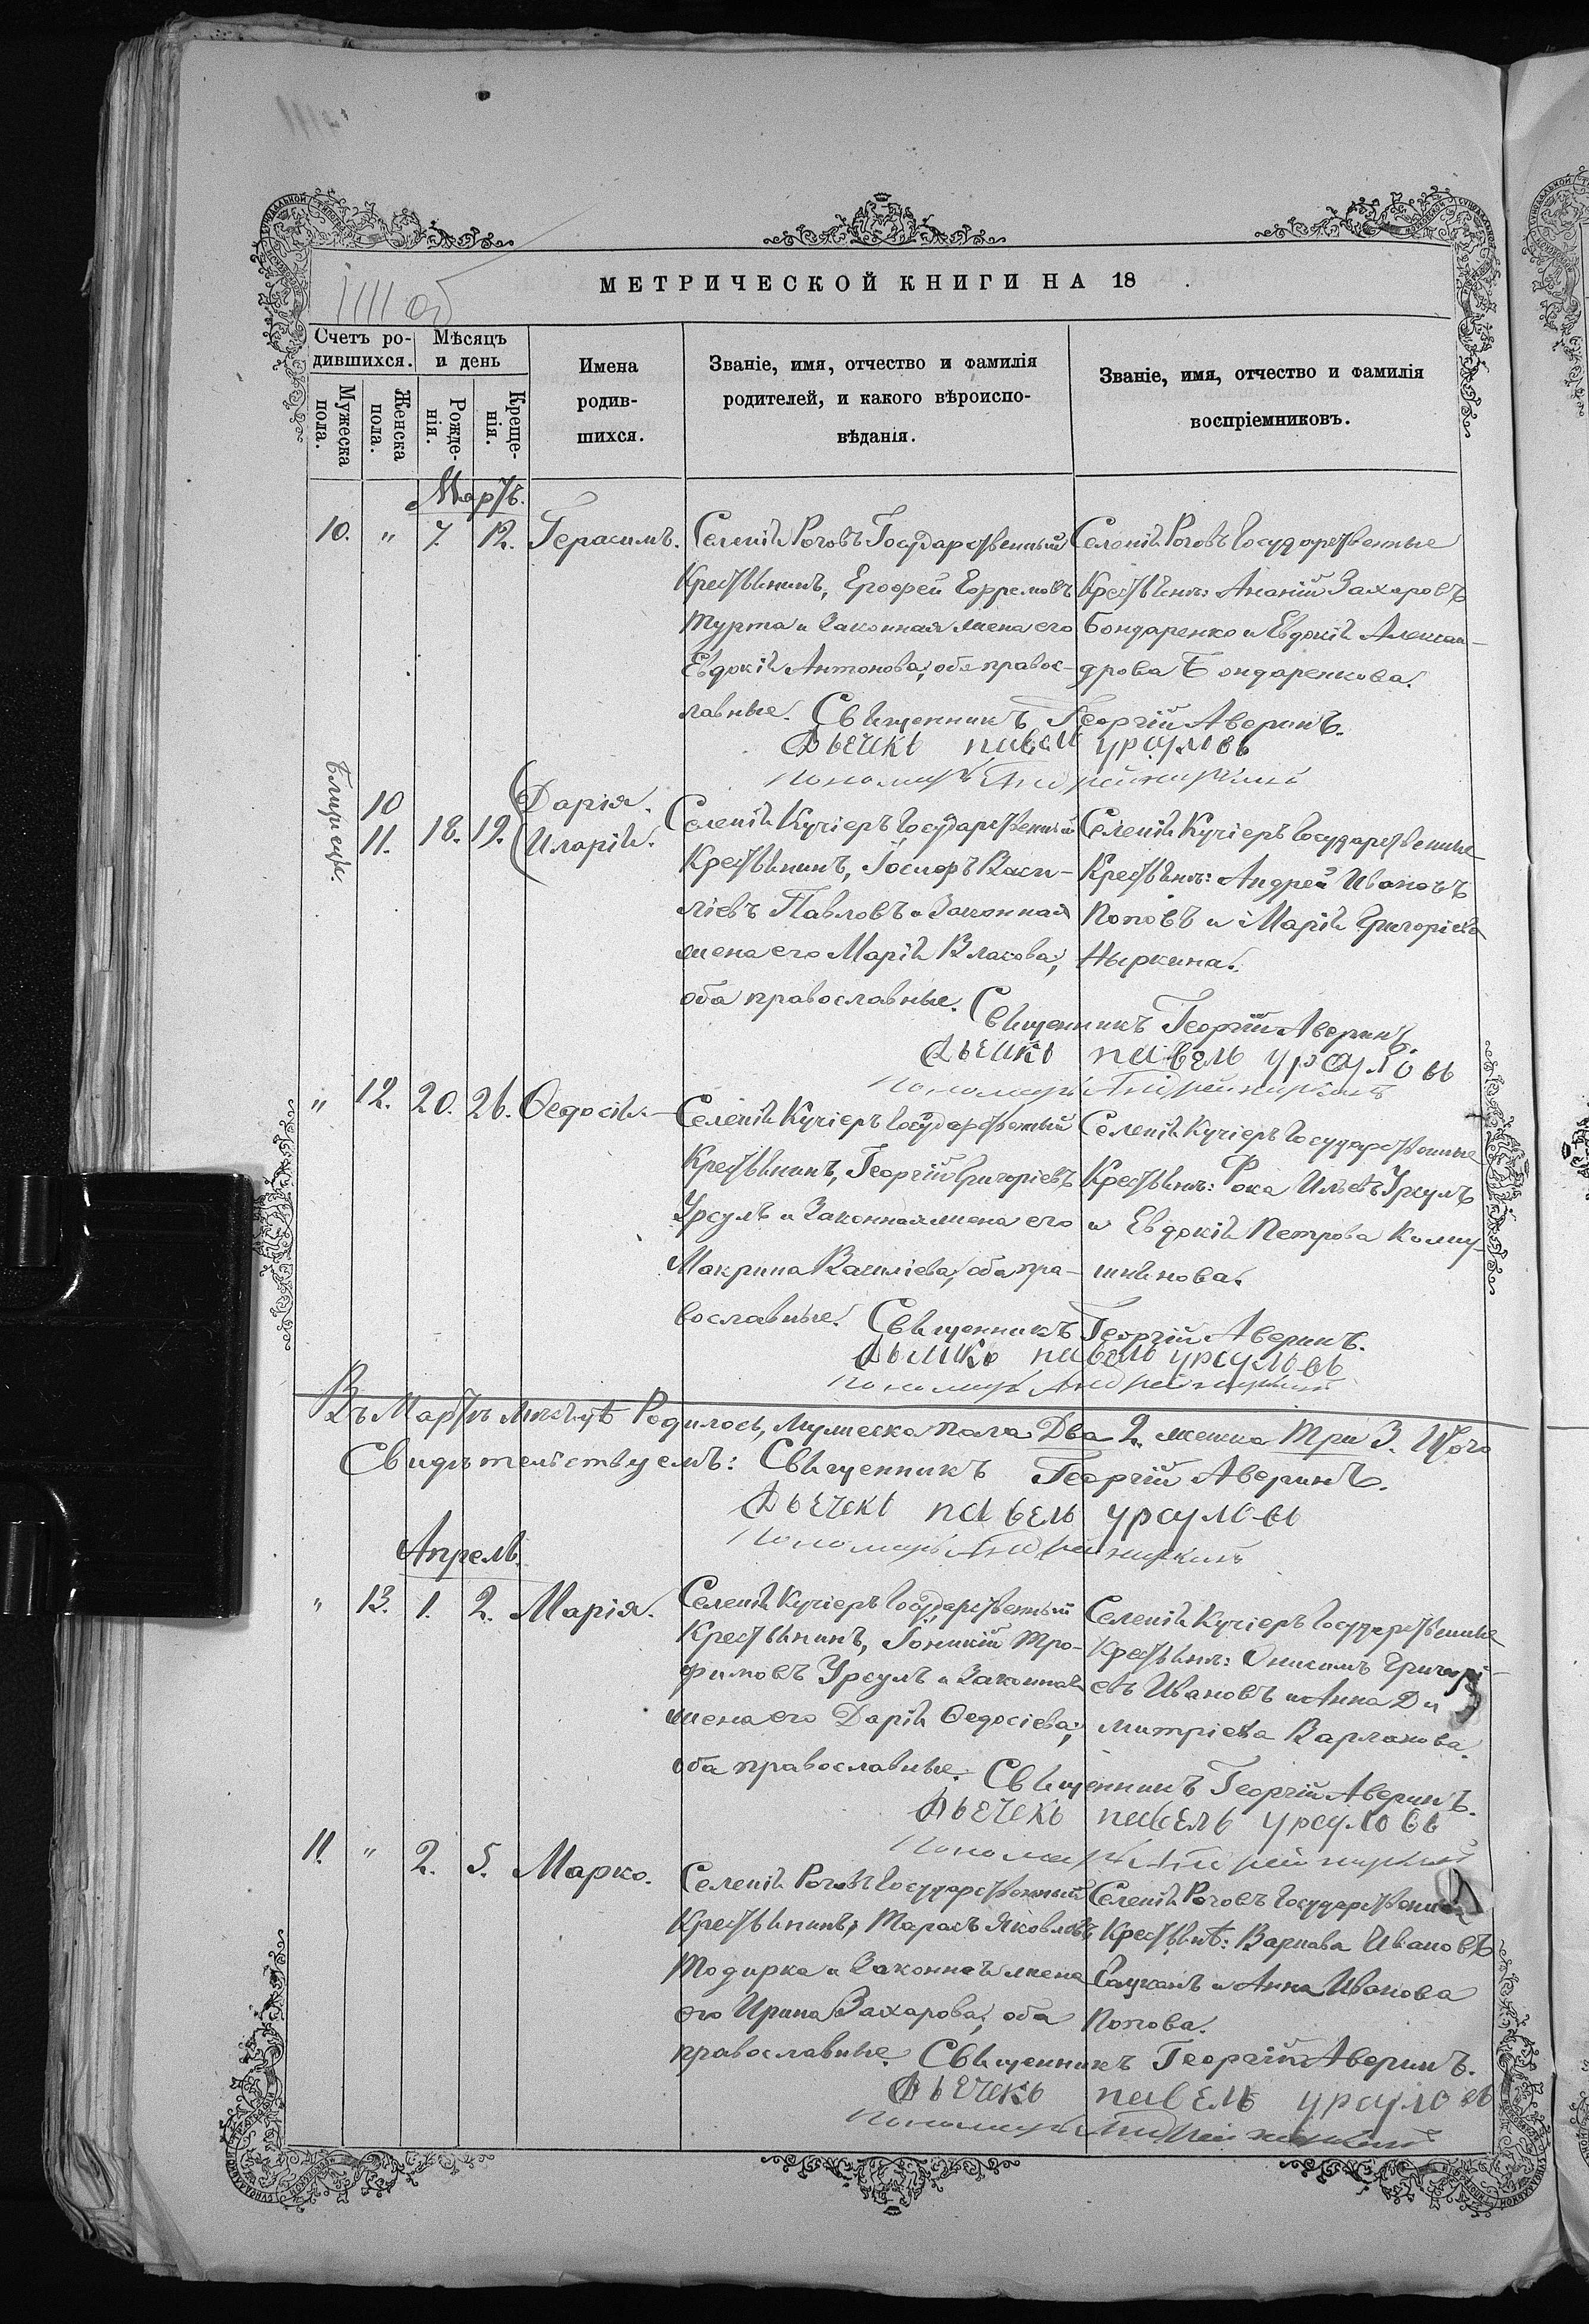 1111 об
МЕТРИЧЕСКОЙ КНИГИ НА 18
Счетъ ро-
дившихся.
Мѣсяцъ
и день
Мужеска
пола.
Женска
пола.
Рожде-
нія.
Креще-
нія.
Имена
родив-
шихся.
Званіе, имя, отчество и фамилія
родителей, и какого вѣроиспо-
вѣданія.
Званіе, имя, отчество и фамилія
воспріемниковъ.
Мартъ.
10. " 7. 12. Герасимъ.
Селенія Роговъ Государственный
Крестьянинъ, Ерофей Ефремовъ
Турта и Законная жена его
Евдокія Антонова, оба правос-
лавные.
Селенія Роговъ Государственные
Крестьяне: Ананій Захаровъ
Бондаренко и Евдокія Алексан-
дрова Бондаренкова.
Священникъ Георгій Аверинъ.
Дьячекъ павелъ урсуловъ
пономарь Андрей
Близнецы.
10
11. 18. 19. Дарія.
Иларія.
Селенія Кучіеръ Государственный
Крестьянинъ, Іосифъ Васи-
ліевъ Павловъ и Законная
жена его Марія Влахова,
оба православные.
Селенія Кучіеръ Государственные
Крестьяне: Андрей Ивановъ
Поповъ и Марія Григоріева
Ныркина.
Священникъ Георгій Аверинъ.
Дьячекъ павелъ урсуловъ
пономарь Андрей
" 12. 20. 26. Ѳедосія.
Селенія Кучіеръ Государственный
Крестьянинъ, Георгій Григоріевъ
Урсулъ и Законная жена его
Макрина Василіева, оба пра-
вославные.
Селенія Кучіеръ Государственные
Крестьяне: Фока Ильевъ Урсулъ
и Евдокія Петрова
Священникъ Георгій Аверинъ.
Дьячекъ павелъ урсуловъ
пономарь Андрей
Въ Мартѣ мѣсяцѣ Родилось, Мужеска пола Два 2. женска Три 3. Итого
Свидѣтельствуемъ: Священникъ Георгій Аверинъ.
Дьячекъ павелъ урсуловъ
пономарь Андрей
Апрель.
" 13. 1. 2. Марія.
Селенія Кучіеръ Государственный
Крестьянинъ, Іоникій Тро-
фимовъ Урсулъ и Законная
жена его Дарія Ѳедосіева,
оба православные.
Селенія Кучіеръ Государственные
Крестьяне: Онисимъ Григорі-
евъ Ивановъ и Анна Ди
митріева Варланова.
Священникъ Георгій Аверинъ.
Дьячекъ павелъ урсуловъ
пономарь Андрей
11. " 2. 5. Марко.
Селенія Роговъ Государственный
Крестьянинъ, Тарасъ Яковлевъ
Тодирка и Законная жена
его Ирина Захарова, оба
православные.
Селенія Роговъ Государственные
Крестьяне: Варнава Ивановъ
и Анна Иванова
Попова.
Священникъ Георгій Аверинъ.
Дьячекъ павелъ урсуловъ
пономарь Андрей